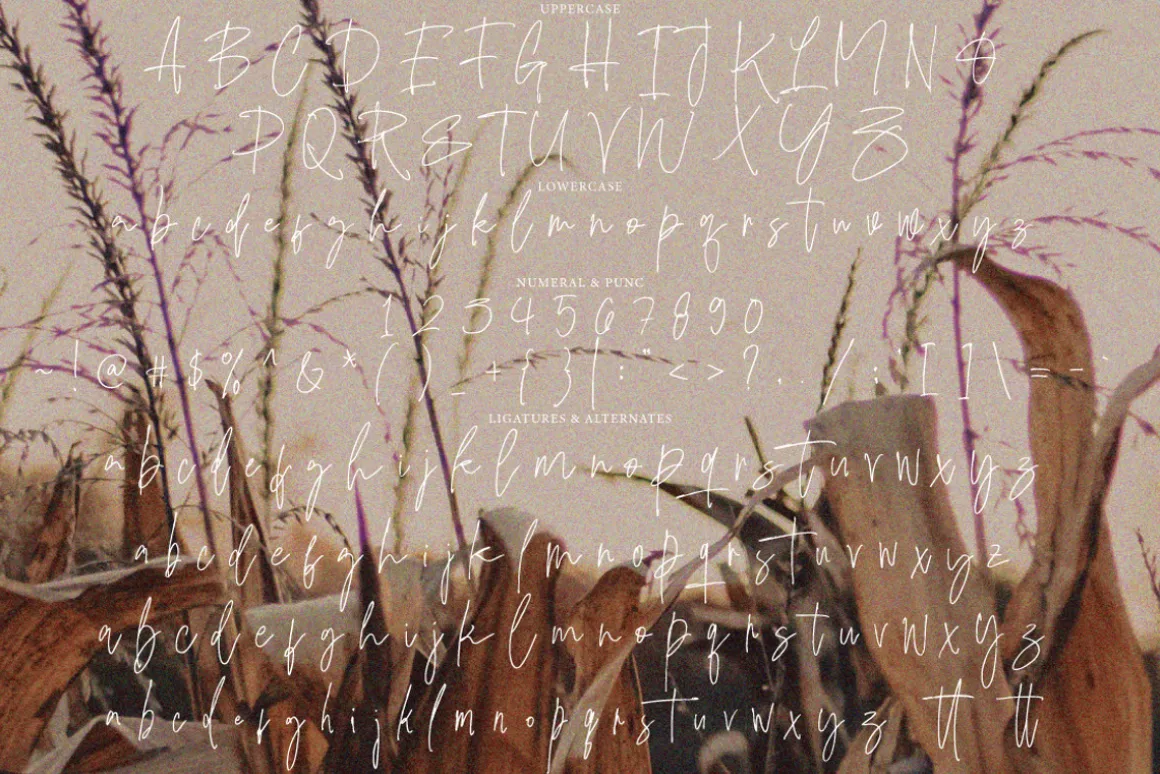 UPPERCASE
A B C D E F G H I J K L M N O
P Q R S T U V W X Y Z
LOWERCASE
a b c d e f g h i j k l m n o p q r s t u v w x y z
NUMERAL & PUNC
1 2 3 4 5 6 7 8 9 0
~ ! @ # $ % ^ & * ( ) _ + { } | : " < > ? , . / ; [ ] \ = - '
LIGATURES & ALTERNATES
a b c d e f g h i j k l m n o p q r s t u v w x y z
a b c d e f g h i j k l m n o p q r s t u v w x y z
a b c d e f g h i j k l m n o p q r s t u v w x y z
a b c d e f g h i j k l m n o p q r s t u v w x y z tt tt